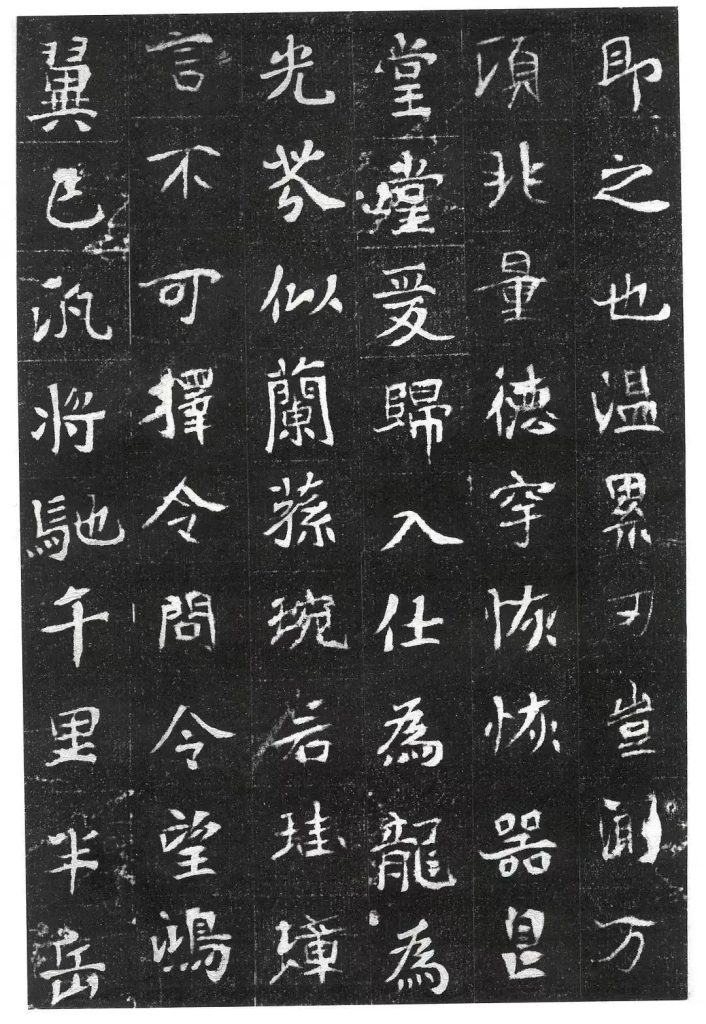 即之也温累刃豈測万
頃非量德宇恢恢器皃
堂堂爰歸入仕為龍為
光芬似蘭蓀琬若珪璋
言不可擇令問令望鴻
翼已汎将馳千里半岳